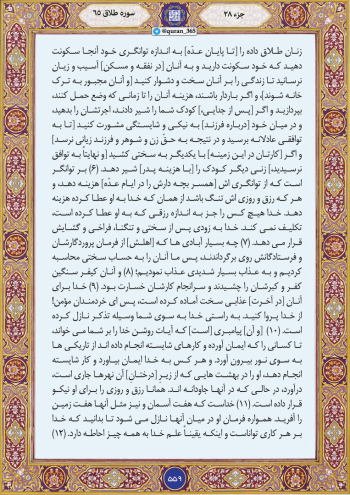 جزء ۲۸
سوره طلاق ۶۵
@quran_365
زنان طلاق داده را [تا پایان عدّه] به اندازه توانگری خود آنجا سکونت
دهید که خود سکونت دارید و به آنان [در نفقه و مسکن] آسیب و زیان
نرسانید تا زندگی را بر آنان سخت و دشوار کنید [و آنان مجبور به ترک
خانه شوند]، و اگر باردار باشند، هزینه آنان را تا زمانی که وضع حمل کنند،
بپردازید و اگر [پس از جدایی،] کودک شما را شیر دادند، اجرتشان را بدهید،
و در میان خود [درباره فرزند] به نیکی و شایستگی مشورت کنید [تا به
توافقی عادلانه برسید و در نتیجه به حقّ زن و شوهر و فرزند زیانی نرسد]
و اگر [کارتان در این زمینه] با یکدیگر به سختی کشید [و نهایتاً به توافق
نرسیدید]، زنی دیگر کودک را [با هزینه پدر] شیر دهد. (۶) بر توانگر
است که از توانگری اش [همسر بچه دارش را در ایام عدّه] هزینه دهد، و
هر که رزق و روزی اش تنگ باشد از همان که خدا به او عطا کرده هزینه
دهد. خدا هیچ کس را جز به اندازه رزقی که به او عطا کرده است،
تکلیف نمی کند. خدا به زودی پس از سختی و تنگنا، فراخی و گشایش
قرار می دهد. (۷) چه بسیار آبادی ها که [اهلش] از فرمان پروردگارشان
و فرستادگانش روی برگرداندند، پس ما آنان را به حساب سختی محاسبه
کردیم و به عذاب بسیار شدیدی عذاب نمودیم؛ (۸) و آنان کیفر سنگین
کفر و کبرشان را چشیدند و سرانجام کارشان خسارت بود. (۹) خدا برای
آنان [در آخرت] عذابی سخت آماده کرده است، پس ای خردمندان مؤمن!
از خدا پروا کنید. به راستی خدا به سوی شما وسیله تذکر نازل کرده
است. (۱۰) [و آن] پیامبری [است] که آیات روشن خدا را بر شما می خواند،
تا کسانی را که ایمان آورده و کارهای شایسته انجام داده اند از تاریکی ها
به سوی نور بیرون آورد. و هر کس به خدا ایمان بیاورد و کار شایسته
انجام دهد، او را در بهشت هایی که از زیرِ [درختانِ] آن نهرها جاری است،
درآورد، در حالی که در آنها جاودانه اند. همانا رزق و روزی را برای او نیکو
قرار داده است. (۱۱) خداست که هفت آسمان و نیز مثل آنها هفت زمین
را آفرید. همواره فرمان او در میان آنها نازل می شود تا بدانید که خدا
بر هر کاری تواناست و اینکه یقیناً علم خدا به همه چیز احاطه دارد. (۱۲)
۵۵۹